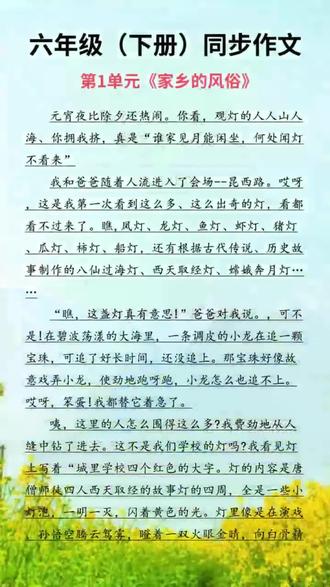 六年级（下册）同步作文
第1单元《家乡的风俗》
元宵夜比除夕还热闹。你看，观灯的人人山人
海、你拥我挤，真是“谁家见月能闲坐，何处闻灯
不看来”
我和爸爸随着人流进入了会场--昆西路。哎呀
，这是我第一次看到这么多、这么出奇的灯，看都
看不过来了。瞧,凤灯、龙灯、鱼灯、虾灯、猪灯
、瓜灯、柿灯、船灯，还有根据古代传说、历史故
事制作的八仙过海灯、西天取经灯、嫦娥奔月灯…
…
“瞧，这盏灯真有意思!”爸爸对我说。，可不
是!在碧波荡漾的大海里，一条调皮的小龙在追一颗
宝珠，可追了好长时间，还没追上。那宝珠好像故
意戏弄小龙，使劲地跑呀跑，小龙怎么也追不上。
哎呀，笨蛋!我都替它着急了。
咦，这里的人怎么围得这么多?我费劲地从人
缝中钻了进去。这不是我们学校的灯吗?我看见灯
上写着“城里学校四个红色的大字。灯的内容是唐
僧师徒四人西天取经的故事灯的四周，全是一些小
灯泡，一明一灭，闪着黄色的光。灯里像是在演戏
、孙悟空腾云驾雾，瞪着一双火眼金睛，向白骨精